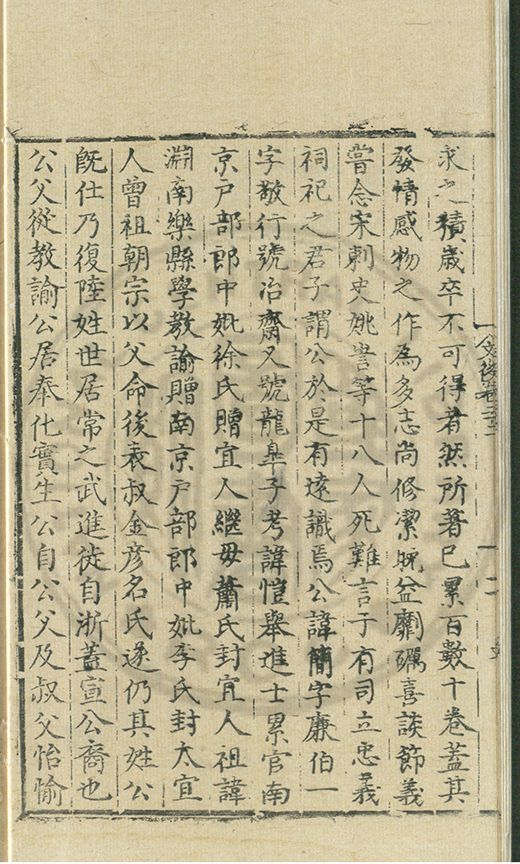 求之積歲卒不可得者然所著已累百數十卷蓋其
發情感物之作為多志尚修潔晚益劘礪喜談節義
嘗念宋刺史姚訔等十八人死難言于有司立忠義
祠祀之君子謂公於是有遠識焉公諱簡字廉伯一
字敬行號冶齋又號龍臯子考諱愷舉進士累官南
京戸部郎中妣徐氏贈宜人繼母蕭氏封宜人祖諱
淵南樂縣學教諭贈南京戸部郎中妣李氏封太宜
人曾祖朝宗以父命後袁叔金彥名氏遂仍其姓公
旣仕乃復陸姓世居常之武進徙自浙蓋宣公裔也
公父從教諭公居奉化實生公自公父及叔父怡愉